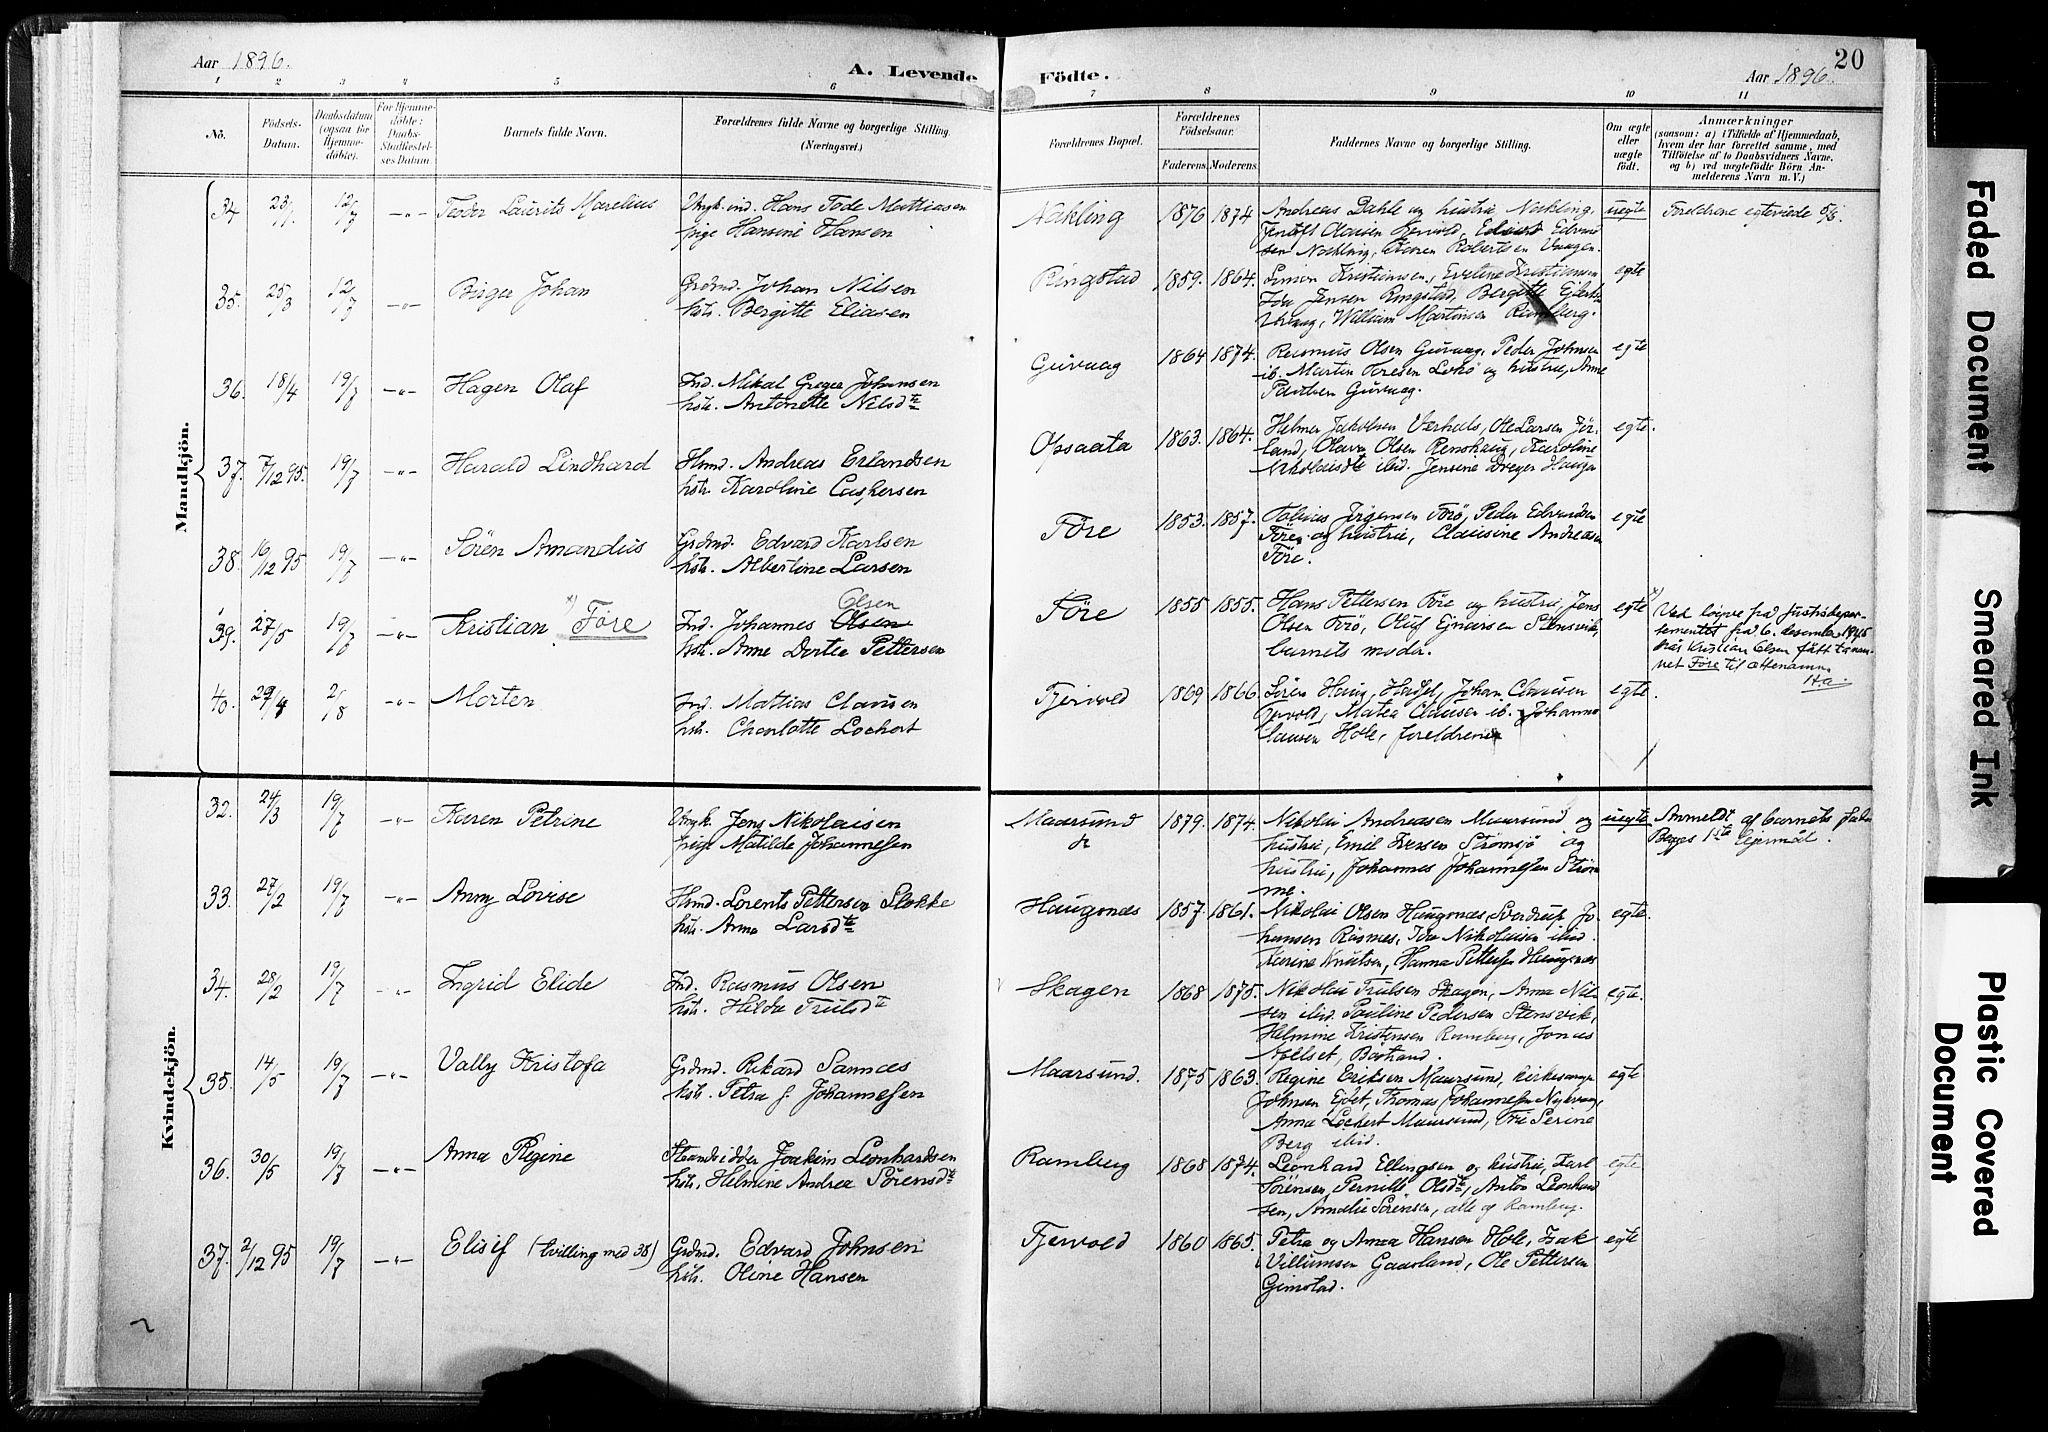 Aar 1896.
A. Levende Födte.
Aar 1896.
20
1 2 3 4 5 6 7 8 9 10 11
No.
Födsels-Datum.
Daabsdatum (ogsaa for Hjemme-döbte).
For Hjemme-döbte: Daabs-Stadfæstel-ses Datum.
Barnets fulde Navn.
Forældrenes fulde Navne og borgerlige Stilling.
(Næringsvei.)
Forældrenes Bopæl.
Forældrenes Födselsaar.
Faderens. Moderens.
Faddernes Navne og borgerlige Stilling.
Om ægte eller uægte födt.
Anmærkninger
(saasom: a) i Tilfælde af Hjemmedaab,
hvem der har forrettet samme, med
Tilföielse af to Daabsvidners Navne,
og b) ved uægtefödte Börn An-
melderens Navn m. V.)
Mandkjön.
34 23/1 12/7 -"- Teodor Laurits Marelius
Ungk. ind. Hans Tode Mathiasen
pige Hansine Hansen
Nakling 1876 1874
Andreas Dahle og hustru Nakling,
Olausen Edvard Edvard
sen Nakling, Robertsen Vaagen.
uegte
Foreldrene egteviede 5/8.
35. 25/3 12/7 -"- Birger Johan
Grdmd. Johan Nilsen
hstr. Bergitte Eliasen
Ringstad 1859. 1864.
Simon Kristiansen, Eveline Kristiansen
Jensen Ringstad, Bergitte
William Martinsen Ramberg.
egte
36. 18/4 19/7 -"- Hagen Olaf
Ind. Mikal Greger Johansen
hstr. Antonette Nilsdte
Guvaag 1864 1874.
Rasmus Olsen Guvaag, Peder Johnsen
ib. Martin Toresen og hustru, Anne
Paulsen Guvaag.
egte
37. 7/12 95. 19/7 -"- Harald Lindhard
Hsmd. Andreas Erlandsen
hstr. Karoline Caspersen
Opsaata 1863. 1864.
Helmer Jakobsen Værhals, Ole Larsen Jör-
land, Olava Olsen Renshaug, Karoline
Nikolaisdte ibid. Jensine Dreyer Haugen
egte.
38. 16/12 95 19/7 -"- Sören Amandus
Grdmd. Edvard Karlsen
hstr. Albertine Larsen
Före 1853. 1857.
Tobias Jörgensen Förö, Peder Edvardsen
Före og hustru, Clausine Andreasen
Före.
egte
39. 27/5 19/7 -"- Kristian *) Före
Olsen
Ind. Johannes Olsen
hstr. Anne Dortea Pettersen
Före 1855 1855.
Hans Pettersen Före og hustru, Jens
Olsen Förö, Oluf Ejnarsen Stensvik,
barnets moder.
egte
*) Ved löyve frå Justisdepar-
tementet frå 6. desember 1946
har Kristian Olsen fått ta nam-
net Före til ættenamn.
H.a.
40. 29/4 2/8 -"- Morten
Ind. Mathias Clausen
hstr. Charlotte Lochert
Fjervold 1869 1866.
Sören Haug, Hadsel, Johan Clausen
Fjervold, Matea Clausen ib. Johanna
Clausen Hole, foreldrene
egte.
Kvindekjön.
32. 24/3 19/7 -"- Karen Petrine
Ungk. Jens Nikolaisen
pige Matilde Johannessen
Maarsund
1879. 1874.
Nikolai Andreasen Maarsund og
hustru, Emil Iversen Strömsjö og
hustru, Johannes Johannessen Ström-
me.
uegte
Anmeldt af barnets fader
Begges 1ste leiermål.
33. 27/2 19/7 -"- Anny Lovise
Hsmd. Lorents Pettersen Slokke
hstr. Anna Larsdte
Haugsnes 1857. 1861.
Nikolai Olsen Haugsnes, Sverdrup Jo-
hansen Rösnes, Ida Nikolaisen ibid.
Karine Knutsen, Hanna Pettersen Haugsnes
egte.
34. 28/2 19/7 -"- Ingrid Elide
Ind. Rasmus Olsen
hstr. Helda Trulsdte
Skagen 1868 1875.
Nikolai Trulsen Skagen, Anna Nil-
sen ibid. Pauline Pedersen Stensvik,
Helmine Kristensen Ramberg, Jonas
Böstrand.
egte.
35. 14/5 19/7 -"- Vally Kristofa
Grdmd. Rikard Sannæs
hstr. Petra J. Johannessen
Maarsund. 1875 1863.
Regine Eriksen Maarsund, kirkesanger
Johnsen Eidet, Thomas Johannessen
Anna Lochert Maarsund, Fru Serine
Berg ibid.
egte
36. 30/5 19/7 -"- Anna Regine
Strandsidder Joakim Leonhardsen
hstr. Helmine Andrea Sörensdte
Ramberg 1868 1874.
Leonhard Ellingsen og hustru, Karl
Sörensen, Pernille Olsdte, Anton Leonhard
sen, Amalie Sörensen, alle af Ramberg.
egte
37. 2/12 95 19/7 -"- Elisif (tvilling med 38)
Grdmd. Edvard Johnsen
hstr. Oline Hansen
Fjervold 1860 1865.
Petra og Anna Hansen Hole, Isak
Villumsen Gaasland, Ole Pettersen
Gimstad.
egte
Faded Document
Smeared Ink
Plastic Covered
Document